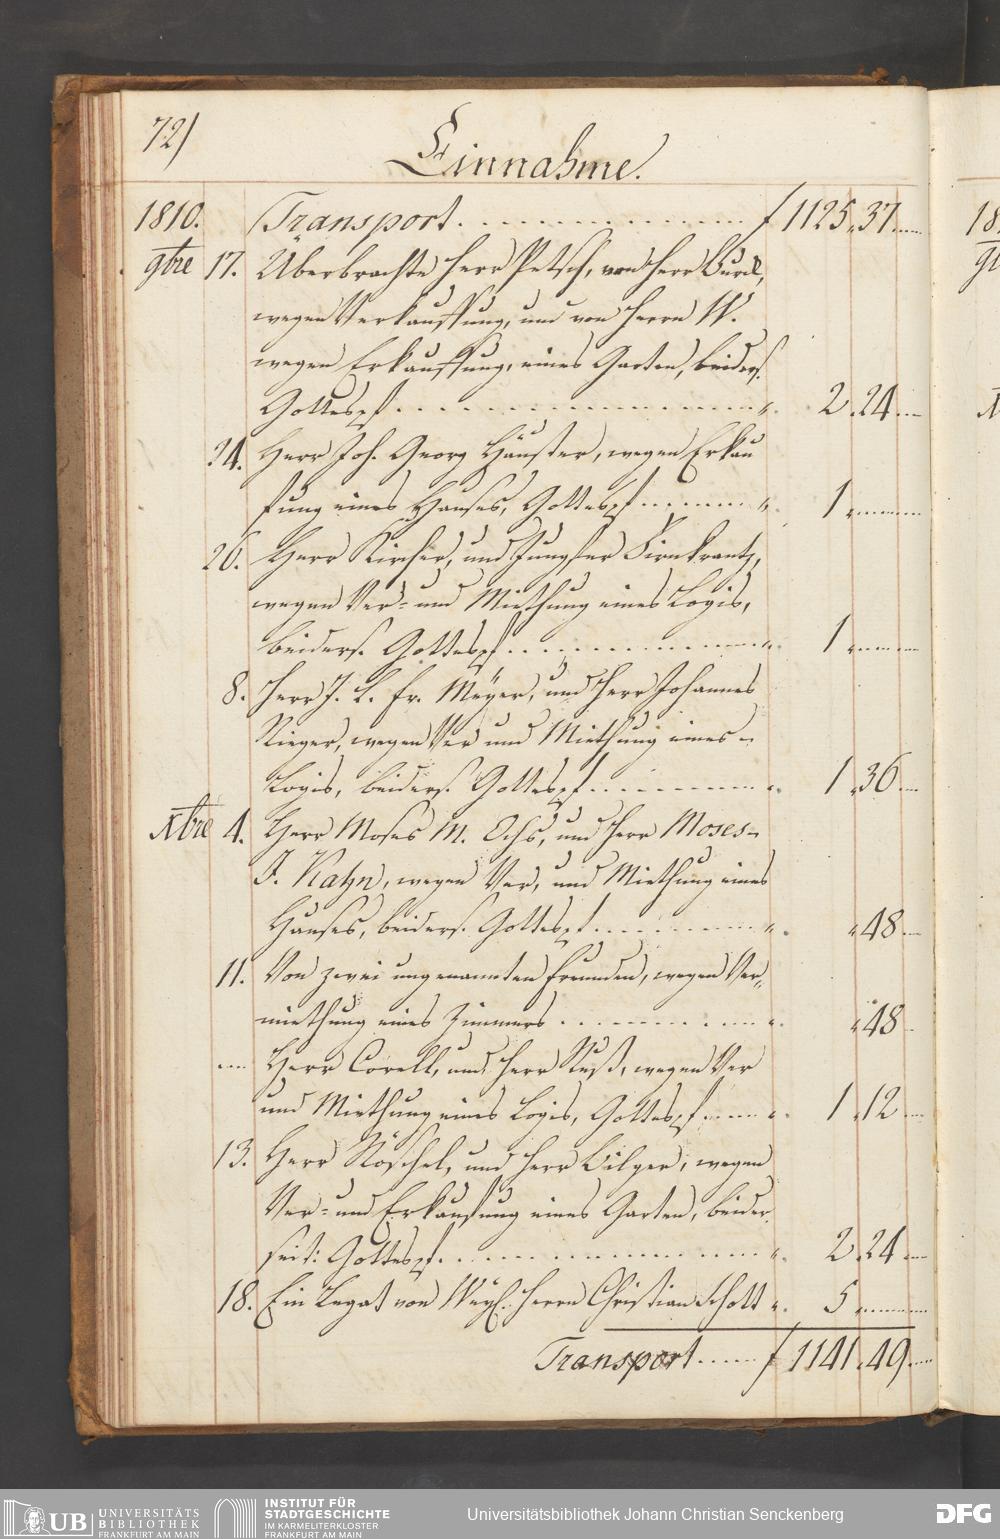 72)
Einnahme.
1810. Transport . . . . . . f 1125 „ 37 ....
9bre 17. Überbrachte Herr Petsch, von Herr Burd,
wegen Verkauffung, und von Herrn W.
wegen Erkauffung, eines Garten, beiders.
Gottespf . . . . . . „ 2 „ 24 ....
24. Herr Joh. Georg Häuster, wegen Erkau
fung eines Hauses, Gottespf . . . . . . „ 1 „ ....
26. Herr Kircher, und Jungfer Firnkrantz,
wegen Ver- und Miethung eines Logis,
beiders. Gottespf . . . . . . „ 1 „ ....
8. Herr J. L. Fr. Meyer, und Herr Johannes
Rieger, wegen Ver und Miethung eines
Logis, beiders. Gottespf . . . . . . „ 1 „ 36 ....
Xbre 4. Herr Moses M. Ochs, und Herr Moses
J. Kahn, wegen Ver, und Miethung eines
Hauses, beiders. Gottespf . . . . . . „ „ 48 ....
11. Von zwei ungenannten Freunden, wegen Ver„
miethung eines Zimmers . . . . . . „ „ 48 ..
.... Herr Corell, und Herr Nuß, wegen Ver
und Miethung eines Logis, Gottespf . . . . „ 1 „ 12 ....
13. Herr Röschel, und Herr Bilger, wegen
Ver- und Erkaufung eines Garten, beider
seit: Gottespf . . . . . . „ 2 „ 24 ....
18. Ein Legat von Weyl. Herrn Christian Schott „ 5 „ ....
Transport . . . . . . f 1141 „ 49 ....
18
9b
X
UB UNIVERSITÄTS
BIBLIOTHEK
FRANKFURT AM MAIN
INSTITUT FÜR
STADTGESCHICHTE
IM KARMELITERKLOSTER
FRANKFURT AM MAIN
Universitätsbibliothek Johann Christian Senckenberg
DFG